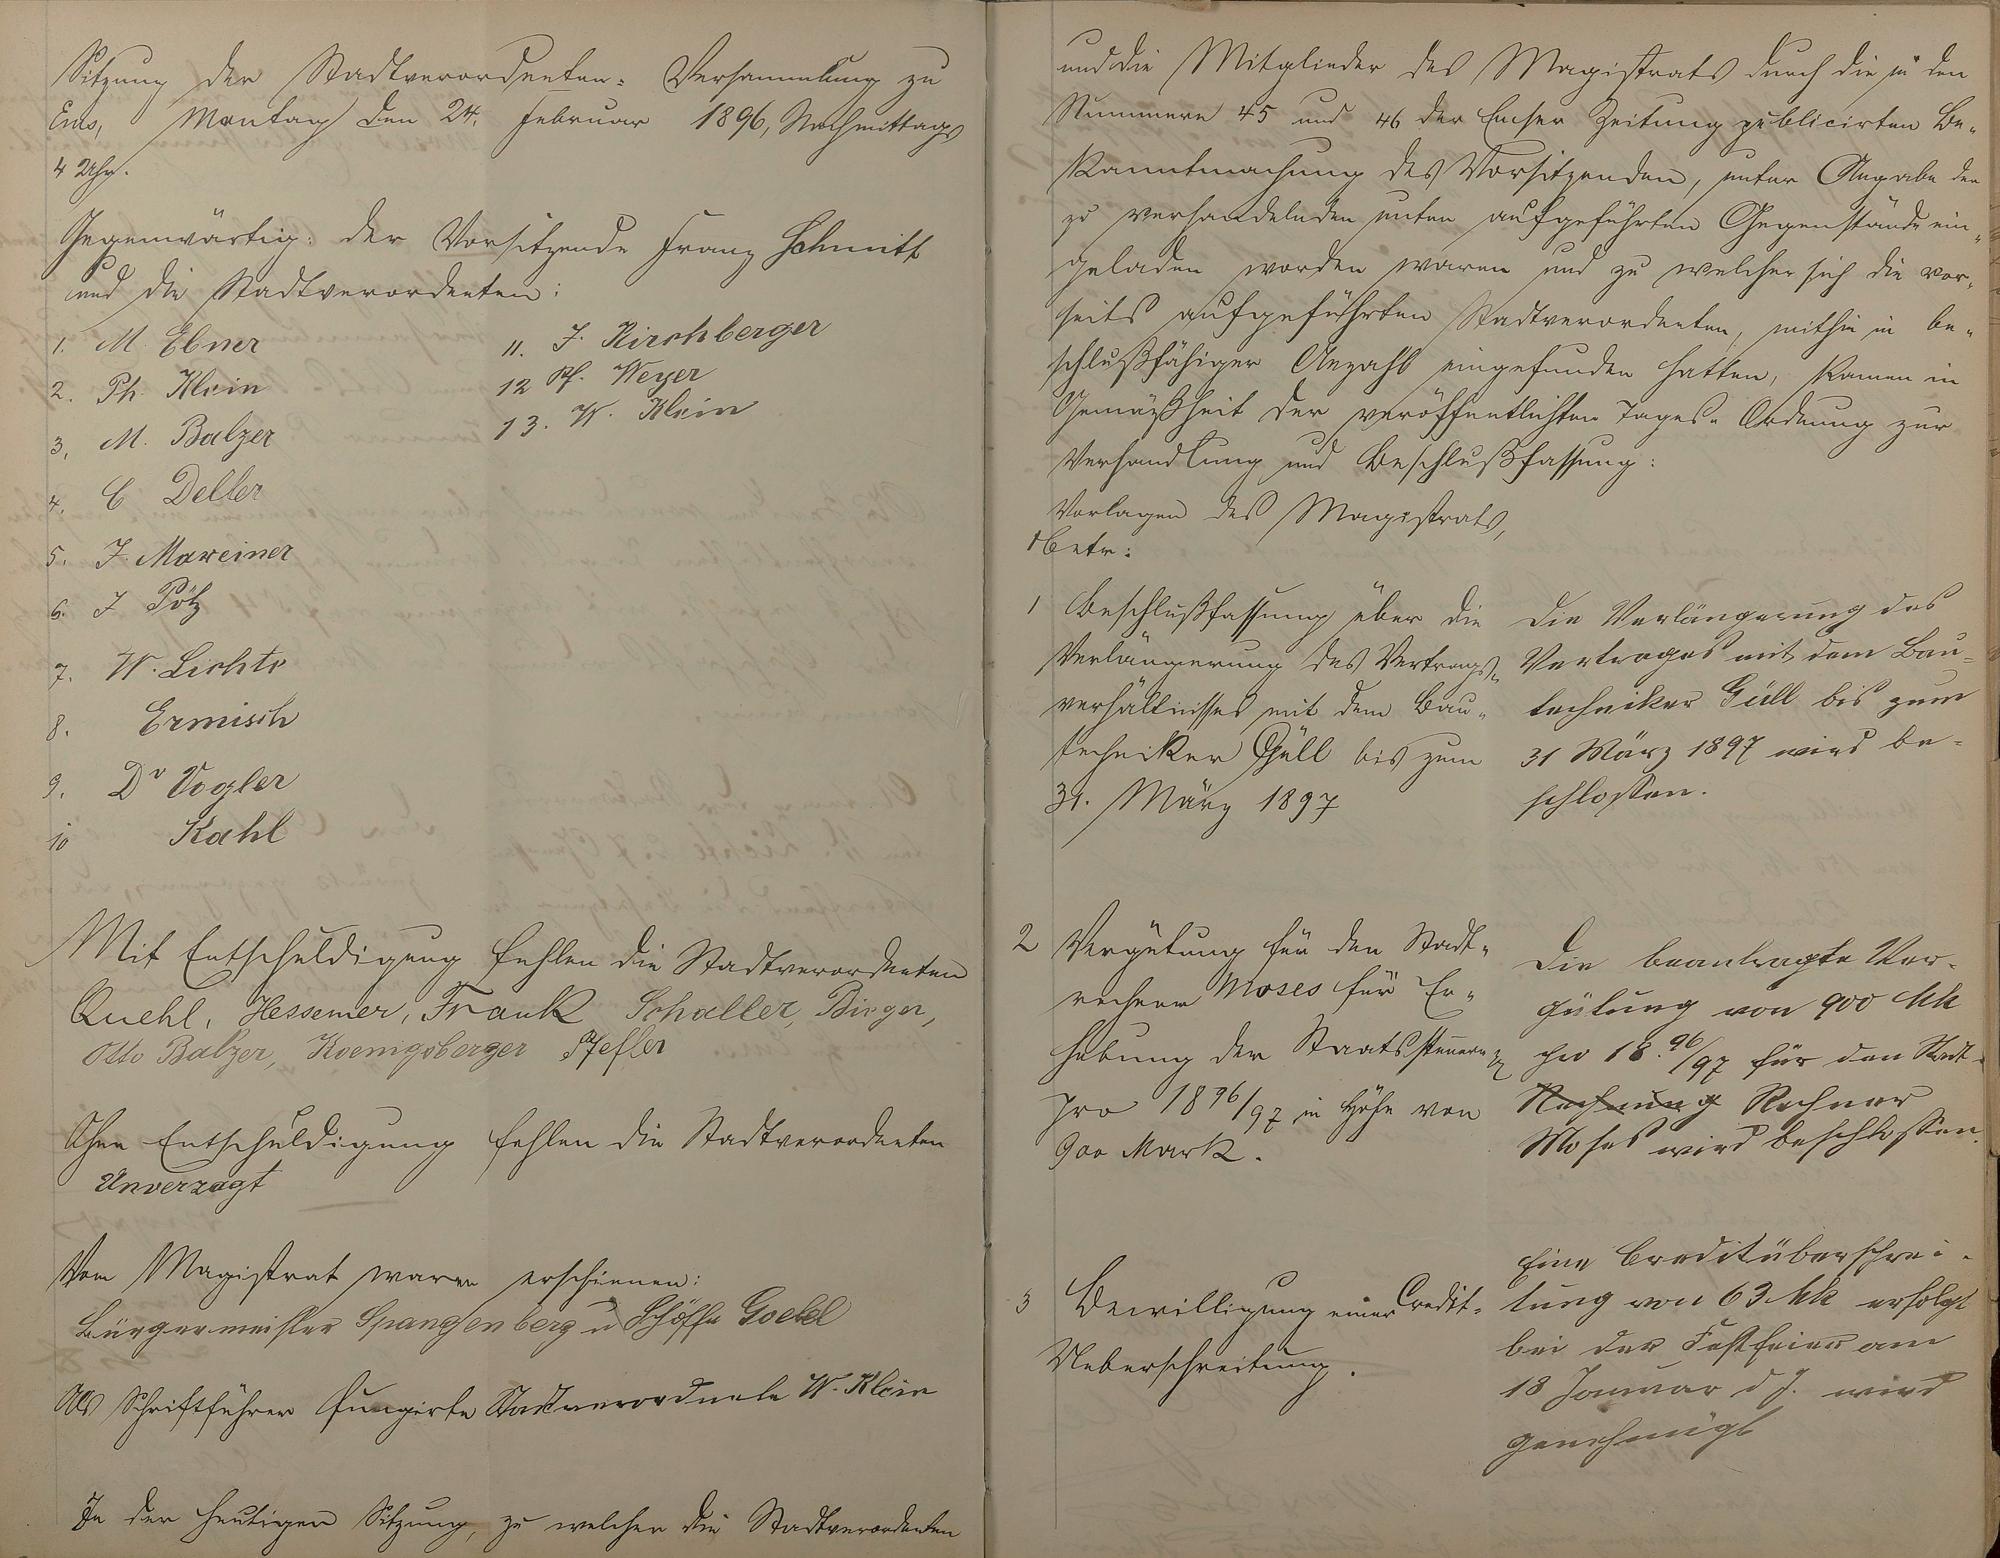 Sitzung der Stadtverordneten-Versammlung zu
Ems, Montag den 24. Februar 1896, Nachmittags
4 Uhr.
Gegenwärtig: der Vorsitzende Franz Schmitt
und die Stadtverordneten:
1. M. Ebner
2. Ph. Klein
3. M. Balzer
4. C Deller
5. J. Maxeiner
6. J Pötz
7. W. Lichte
8. Ermisch
9. Dr Vogler
10 Kahl
11. J. Kirchberger
12 Ph. Weyer
13. W. Klein
Mit Entschuldigung fehlen die Stadtverordneten
Quehl, Hessemer, Frank Schaller, Birger,
Otto Balzer, Koenigsberger Pfefler
Ohne Entschuldigung fehlen die Stadtverordneten
Unverzagt
Vom Magistrat waren erschienen:
Bürgermeister Spangenberg u Schöffe Goebel
Als Schriftführer fungirte Stadtverordnete W. Klein
In der heutigen Sitzung, zu welcher die Stadtverordneten
und die Mitglieder des Magistrats durch die in den
Nummern 45 und 46 der Emser Zeitung publicirten Be-
kanntmachung des Vorsitzenden, unter Angabe der
zu verhandelnden unten aufgeführten Gegenstände ein-
geladen worden waren und zu welcher sich die vor-
seits aufgeführten Stadtverordneten, mithin in be-
schlußfähiger Anzahl eingefunden hatten, kamen in
Gemäßheit der veröffentlichten Tages-Ordnung zur
Verhandlung und Beschlußfassung:
Vorlagen des Magistrats,
betr:
1 Beschlußfassung über die
Verlängerung des Vertrags-
verhältnisses mit dem Bau-
techniker Güll bis zum
31. März 1897
Die Verlängerung des
Vertrages mit dem Bau-
techniker Güll bis zum
31 März 1897 wird be-
schlossen.
2 Vergütung für den Stadt-
rechner Moses für Er-
hebung der Staatssteuern
pro 1896/97 in Höhe von
900 Mark.
Die beantragte Ver-
gütung von 900 Mk
pro 18.96/97 für den Stadt-
Rechnung Rechner
Moses wird beschlossen.
3 Bewilligung einer Credit-
Ueberschreitung.
Eine Creditüberschrei-
tung von 63 Mk erfolgt
bei der Festfeier am
18 Januar d J. wird
genehmigt